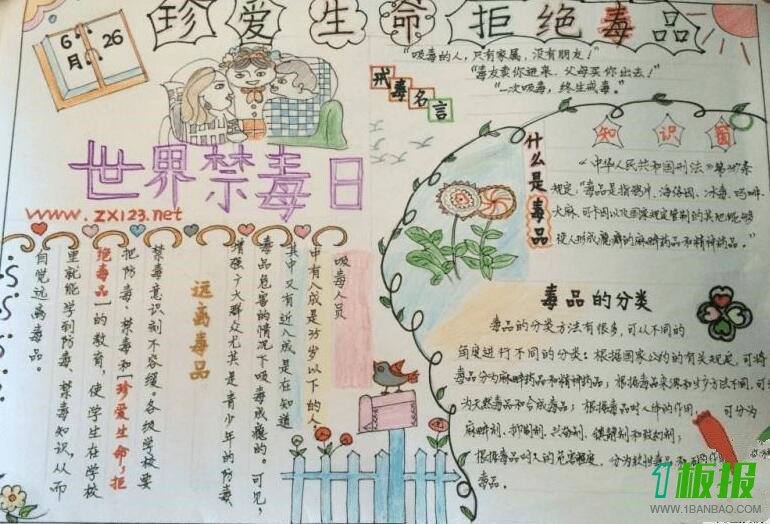 珍爱生命拒绝毒品
6月26
"吸毒的人，只有家属，没有朋友！"
"毒友卖你进来，父母买你出去！"
"一次吸毒，终生戒毒。"
戒毒名言
世界禁毒日
www.zx123.net
知识窗
什么是毒品
《中华人民共和国刑法》第357条
规定，"毒品是指鸦片、海洛因、冰毒、吗啡、
大麻、可卡因以及国家规定管制的其他能够
使人形成瘾癖的麻醉药品和精神药品。"
毒品的分类
毒品的分类方法有很多，可从不同的
角度进行不同的分类：根据国家公约的有关规定，可将
毒品分为麻醉药品和精神药品；根据毒品来源和生产方法不同，可
为天然毒品和合成毒品；根据毒品对人体的作用，可分为
麻醉剂、抑制剂、兴奋剂、镇静剂和致幻剂；
根据毒品对人的危害程度，分为软性毒品和
毒品。
吸毒人员
中有八成是35岁以下的人，
其中又有近八成是在不知道
毒品危害的情况下吸毒成瘾的。可见，
增强广大群众尤其是青少年的防毒、
远离毒品
禁毒意识刻不容缓。各级学校要
把防毒、禁毒和"珍爱生命，拒
绝毒品"的教育，使学生在学校
里就能学到防毒、禁毒知识，从而
自觉远离毒品。
1板报
WWW.1BANBAO.COM